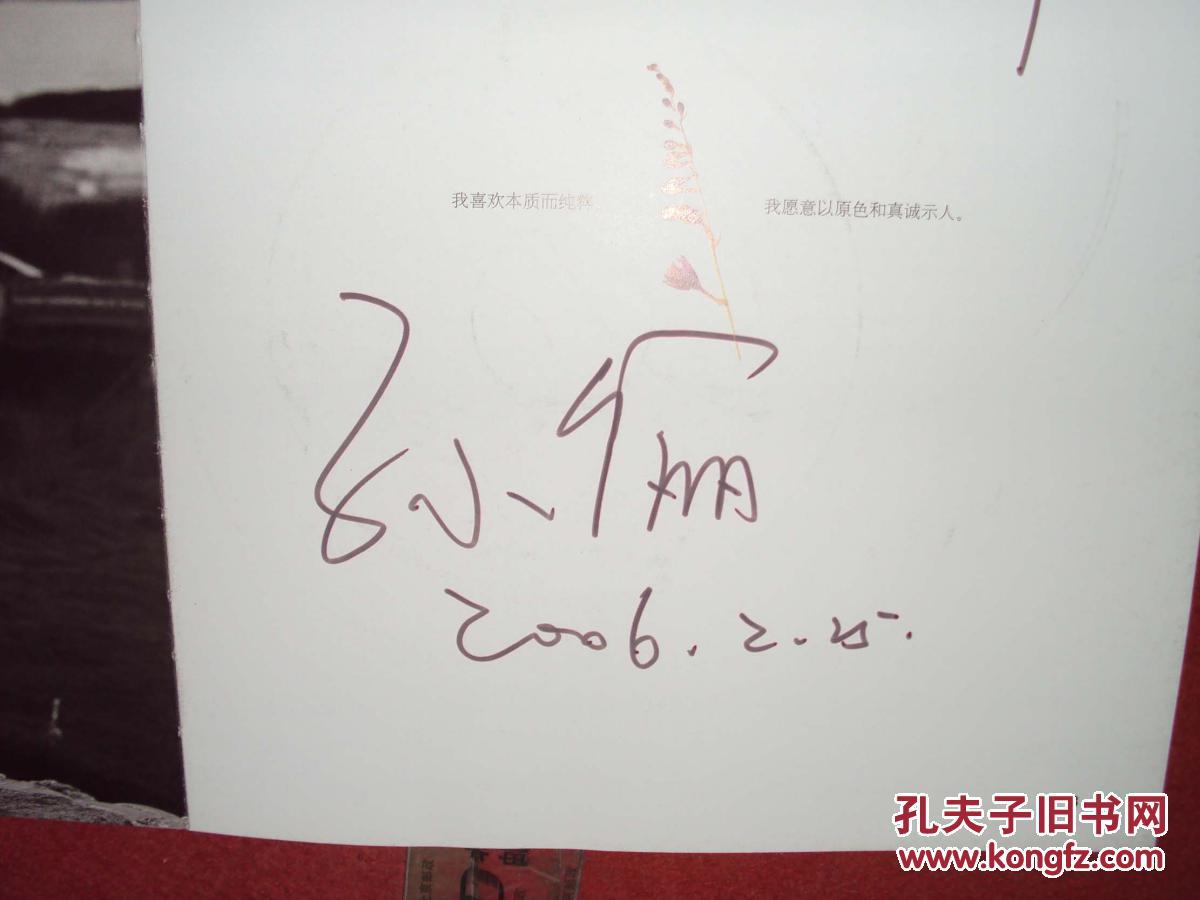 我喜欢本质而纯粹 我愿意以原色和真诚示人。
孙俪
2006.2.25.
孔夫子旧书网
www.kongfz.com